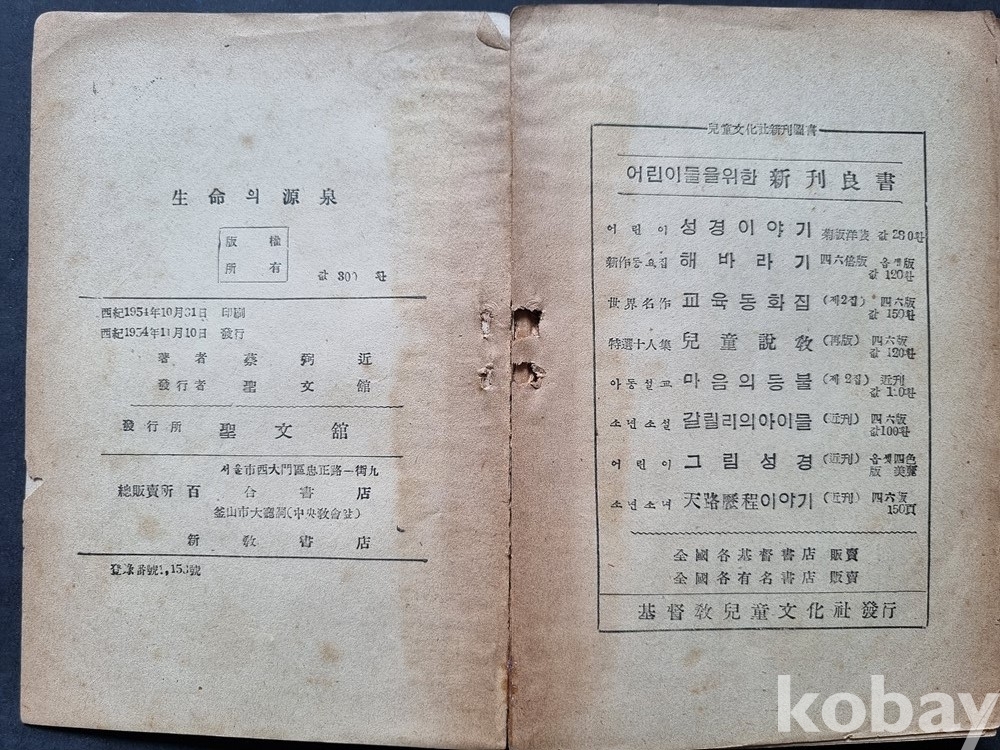 生命의源泉
版權
所有
값 300 환
西紀1954年10月31日 印刷
西紀1954年11月10日 發行
著者 蔡弼近
發行者 聖文館
發行所 聖文舘
서울市西大門區忠正路一街九
總販賣所 百合書店
釜山市大廳洞(中央敎會앞)
新敎書店
登錄番號1,153號
兒童文化社新刊圖書
어린이들을위한 新刊良書
어린이 성경이야기 菊版洋裝 값 280환
新作동요집 해바라기 四六倍版 옵셑版
값 120환
世界名作 교육동화집 (제2집) 四六版
값 150환
特選十人集 兒童說敎 (再版) 四六版
값 120환
아동설교 마음의등불 (제2집) 近刊
값 110환
소년소설 갈릴리의아이들 (近刊) 四六版
값100환
어린이 그림성경 (近刊) 옵셑四色
版 美麗
소년소녀 天路歷程이야기 (近刊) 四六版
150頁
全國各基督書店 販賣
全國各有名書店 販賣
基督敎兒童文化社發行
kobay